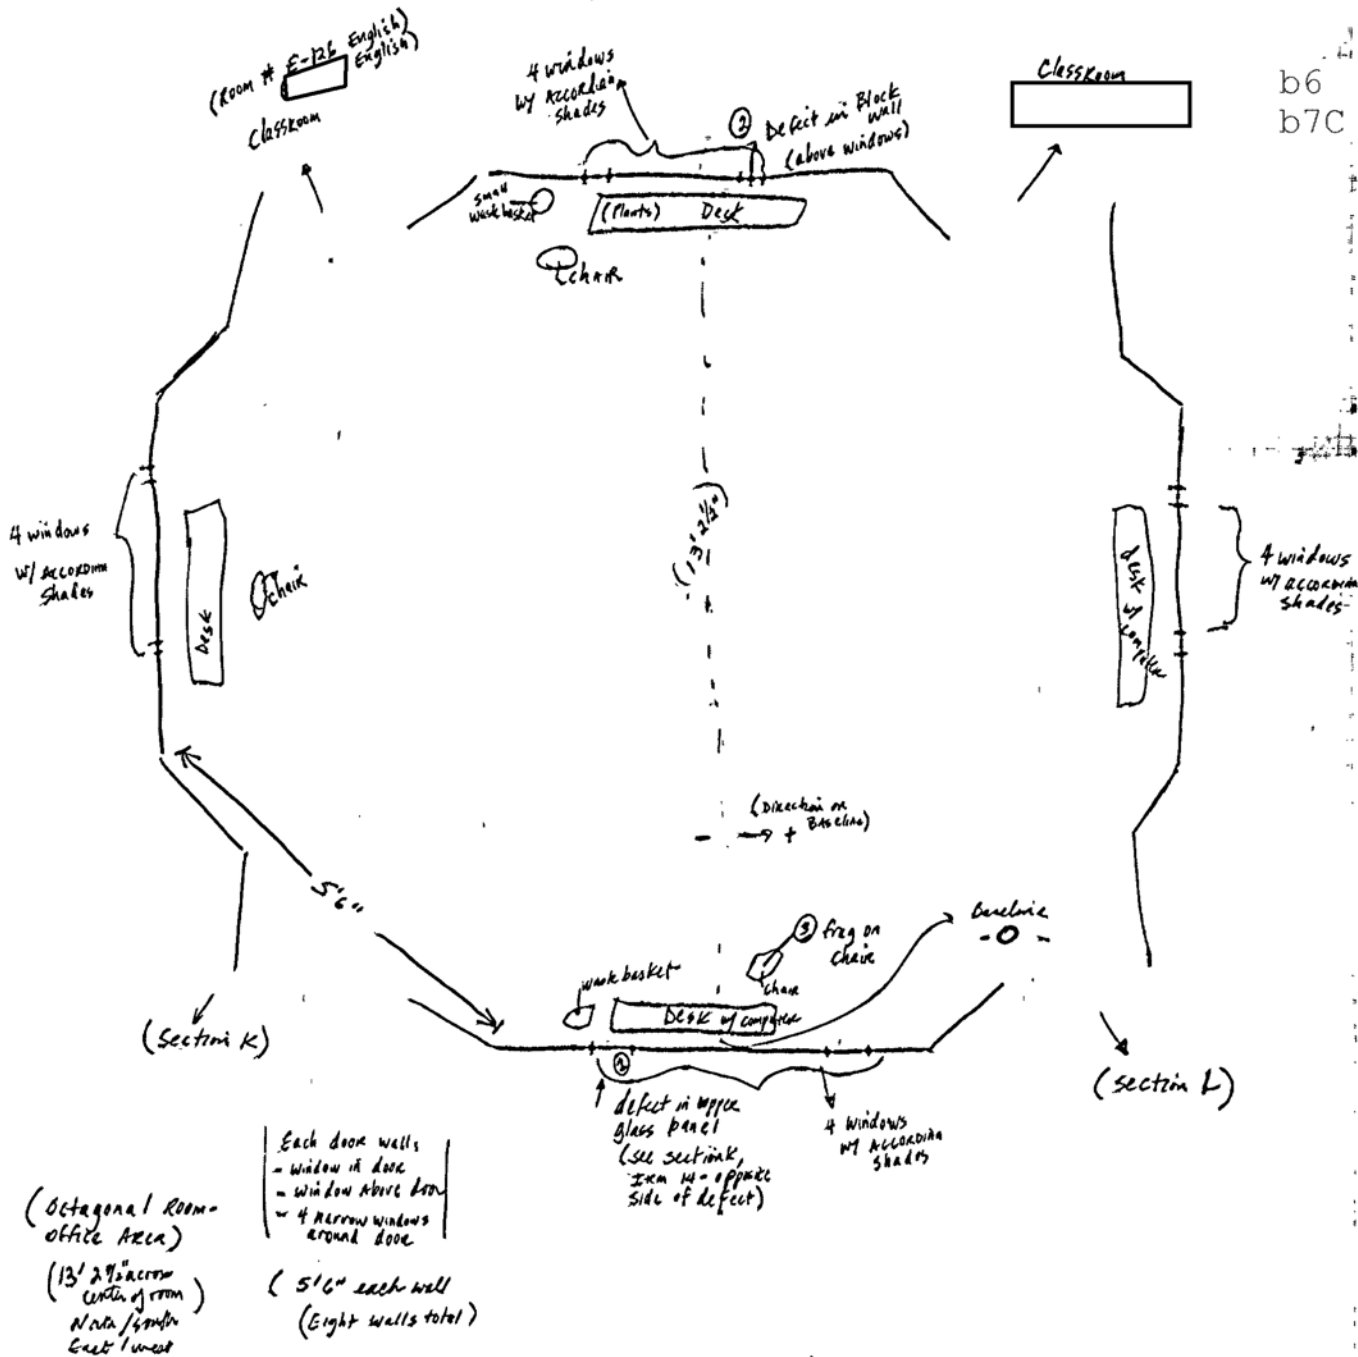 (Room # E-126 English)
English)
Classroom
4 windows
w/ Accordian
Shades
② Defect in Block
wall
(above windows)
Classroom
b6
b7C
small
wastebasket
(Plants) Desk
Chair
4 windows
w/ Accordian
Shades
Desk
Chair
(13' 2½"
desk w/
computer
4 windows
w/ accordian
shades
(Direction on
Baseline)
- → +
5'6"
Baseline
- O -
③ frag on
chair
chair
waste basket
Desk w/ computer
(Section K)
(section L)
②
defect in upper
glass panel
(see section K,
Item 14 - opposite
side of defect)
4 windows
w/ Accordian
Shades
Each door walls
- window in door
- window above door
- 4 narrow windows
around door
(Octagonal Room -
office Area)
(13' 2½" across
center of room)
North/South
East/west
(5'6" each wall
(Eight walls total)